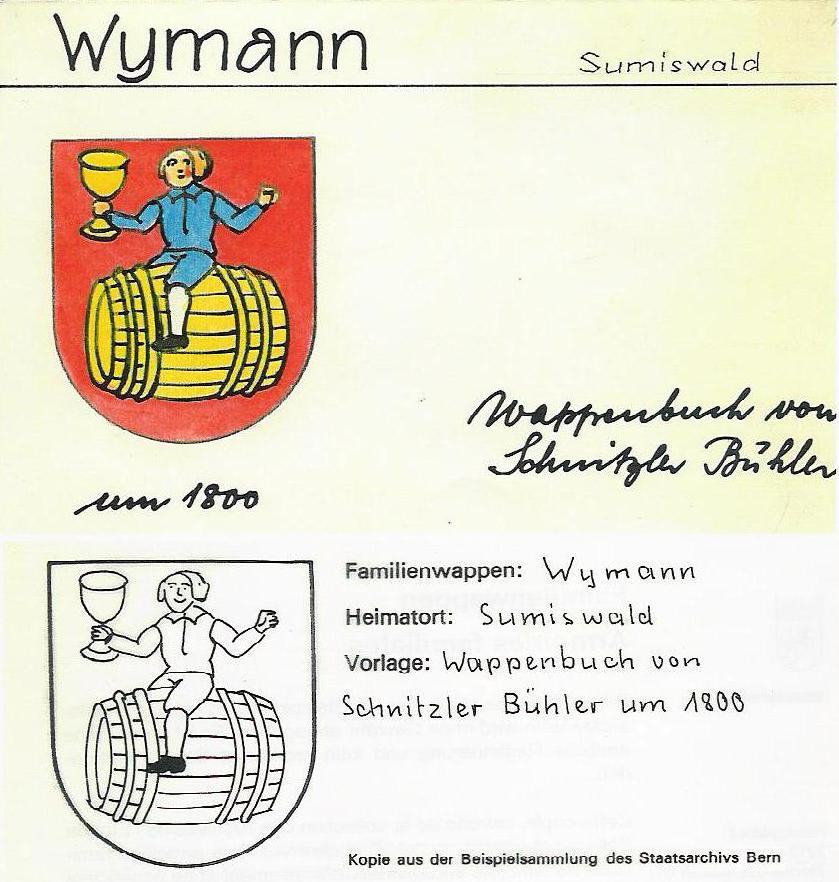 Wymann
Sumiswald
Wappenbuch von
Schnitzler Bühler
um 1800
Familienwappen: Wymann
Heimatort: Sumiswald
Vorlage: Wappenbuch von
Schnitzler Bühler um 1800
Kopie aus der Beispielsammlung des Staatsarchivs Bern